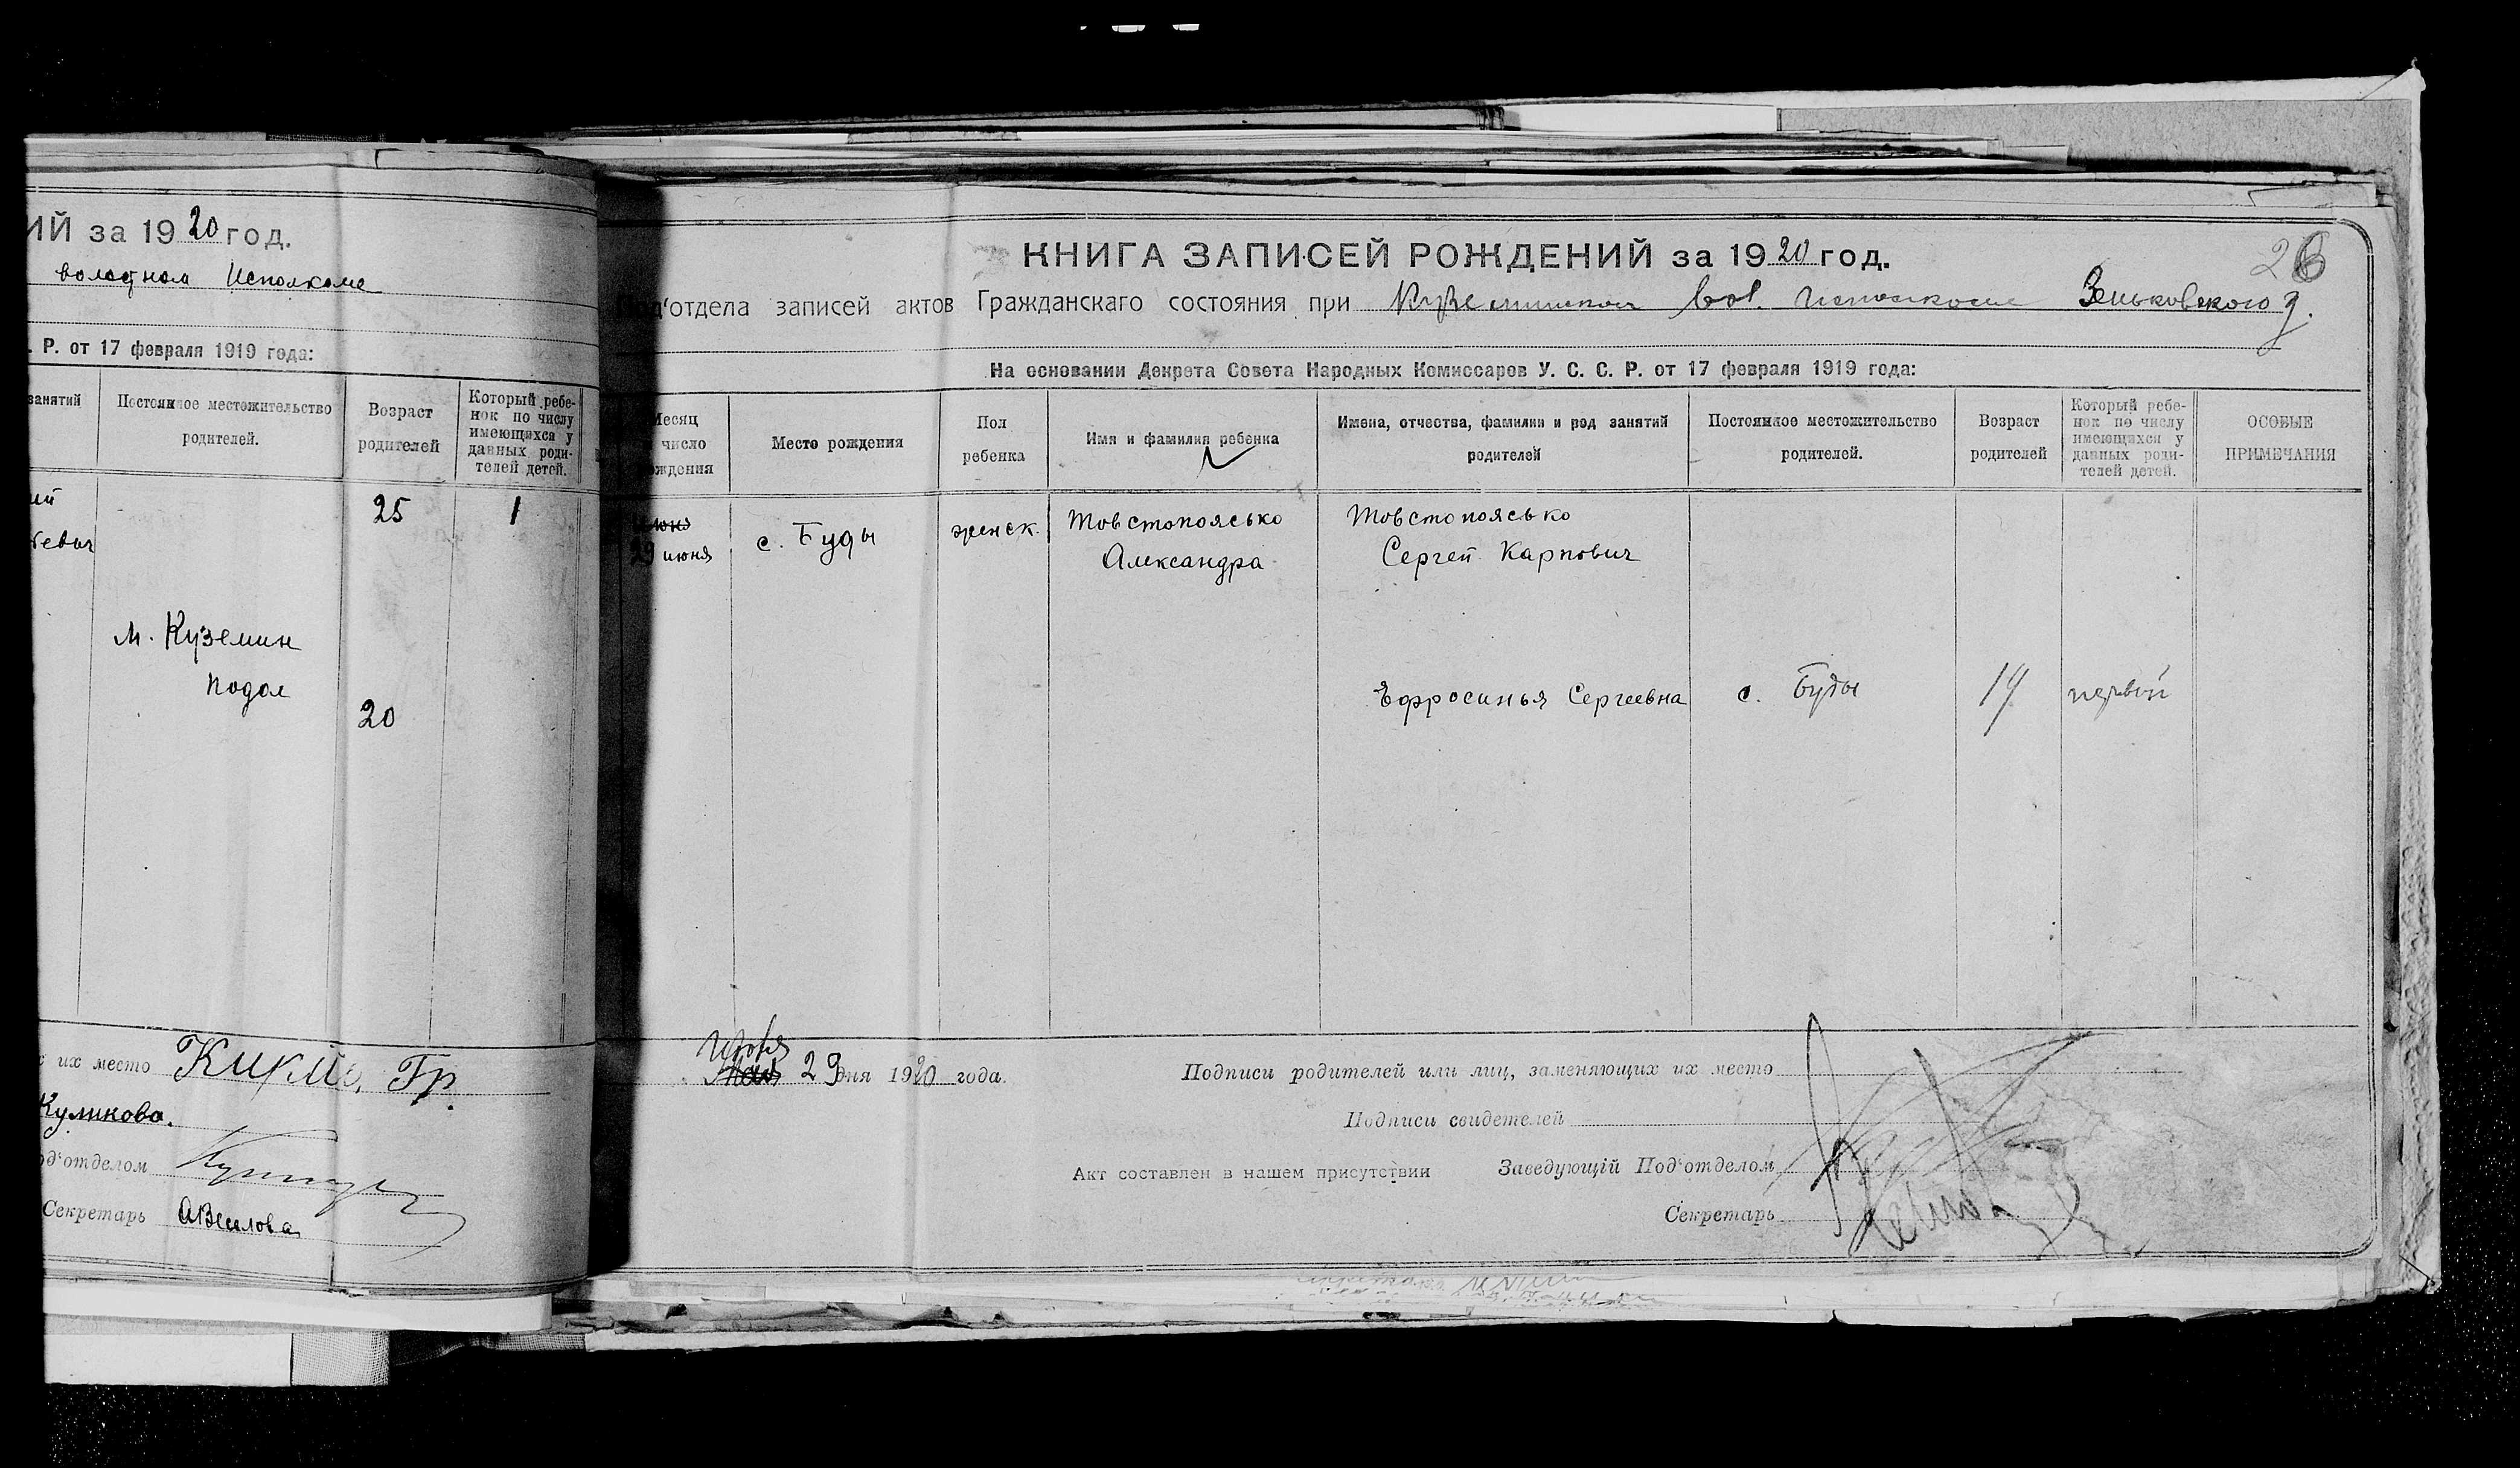 ИЙ за 1920 год.
волостном Исполкоме
. Р. от 17 февраля 1919 года:
занятий
Постоянное местожительство
родителей.
Возраст
родителей
Который ребе-
нок по числу
имеющихся у
данных роди-
телей детей.
25
1
м. Куземин
Подол
20
их место
Куликова.
од'отделом
Секретарь
КНИГА ЗАПИСЕЙ РОЖДЕНИЙ за 1920 год.
26
Под'отдела записей актов Гражданскаго состояния при Куземинском вол. Исполкоме Зеньковского у.
На основании Декрета Совета Народных Комиссаров У. С. С. Р. от 17 февраля 1919 года:
Месяц
число
ождения
Место рождения
Пол
ребенка
Имя и фамилия ребенка
Имена, отчества, фамилии и род занятий
родителей
Постоянное местожительство
родителей.
Возраст
родителей
Который ребе-
нок по числу
имеющихся у
данных роди-
телей детей.
ОСОБЫЕ
ПРИМЕЧАНИЯ
29 июня
с. Буды
женск.
Товстопоясько
Александра
Товстопоясько
Сергей Карпович
Ефросинья Сергеевна
с. Буды
19
первый
Июня
29 дня 1920 года.
Подписи родителей или лиц, заменяющих их место
Подписи свидетелей
Акт составлен в нашем присутствии
Заведующій Под'отделом
Секретарь